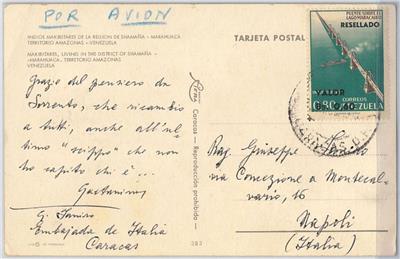 POR AVION
INDIOS MAKIRITARES DE LA REGION DE SHAMAÑA - MARAHUACA
TERRITORIO AMAZONAS - VENEZUELA
MAKIRITARES, LIVING IN THE DISTRICT OF SHAMAÑA -
-MARAHUACA. TERRITORIO AMAZONAS
VENEZUELA
Grazie del pensiero da
Sorrento, che ricambio
a tutti, anche all'ul-
timo "scippo" che non
ho capito chi è...
G.
Embajada de Italia
Caracas
Caracas - Reproducción prohibida -
TARJETA POSTAL
PUENTE SOBRE EL
LAGO MARACAIBO
RESELLADO
VALOR
CORREOS
VENEZUELA
Rag. Giuseppe
via Concezione a Montecal-
vario, 16
Napoli
(Italia)